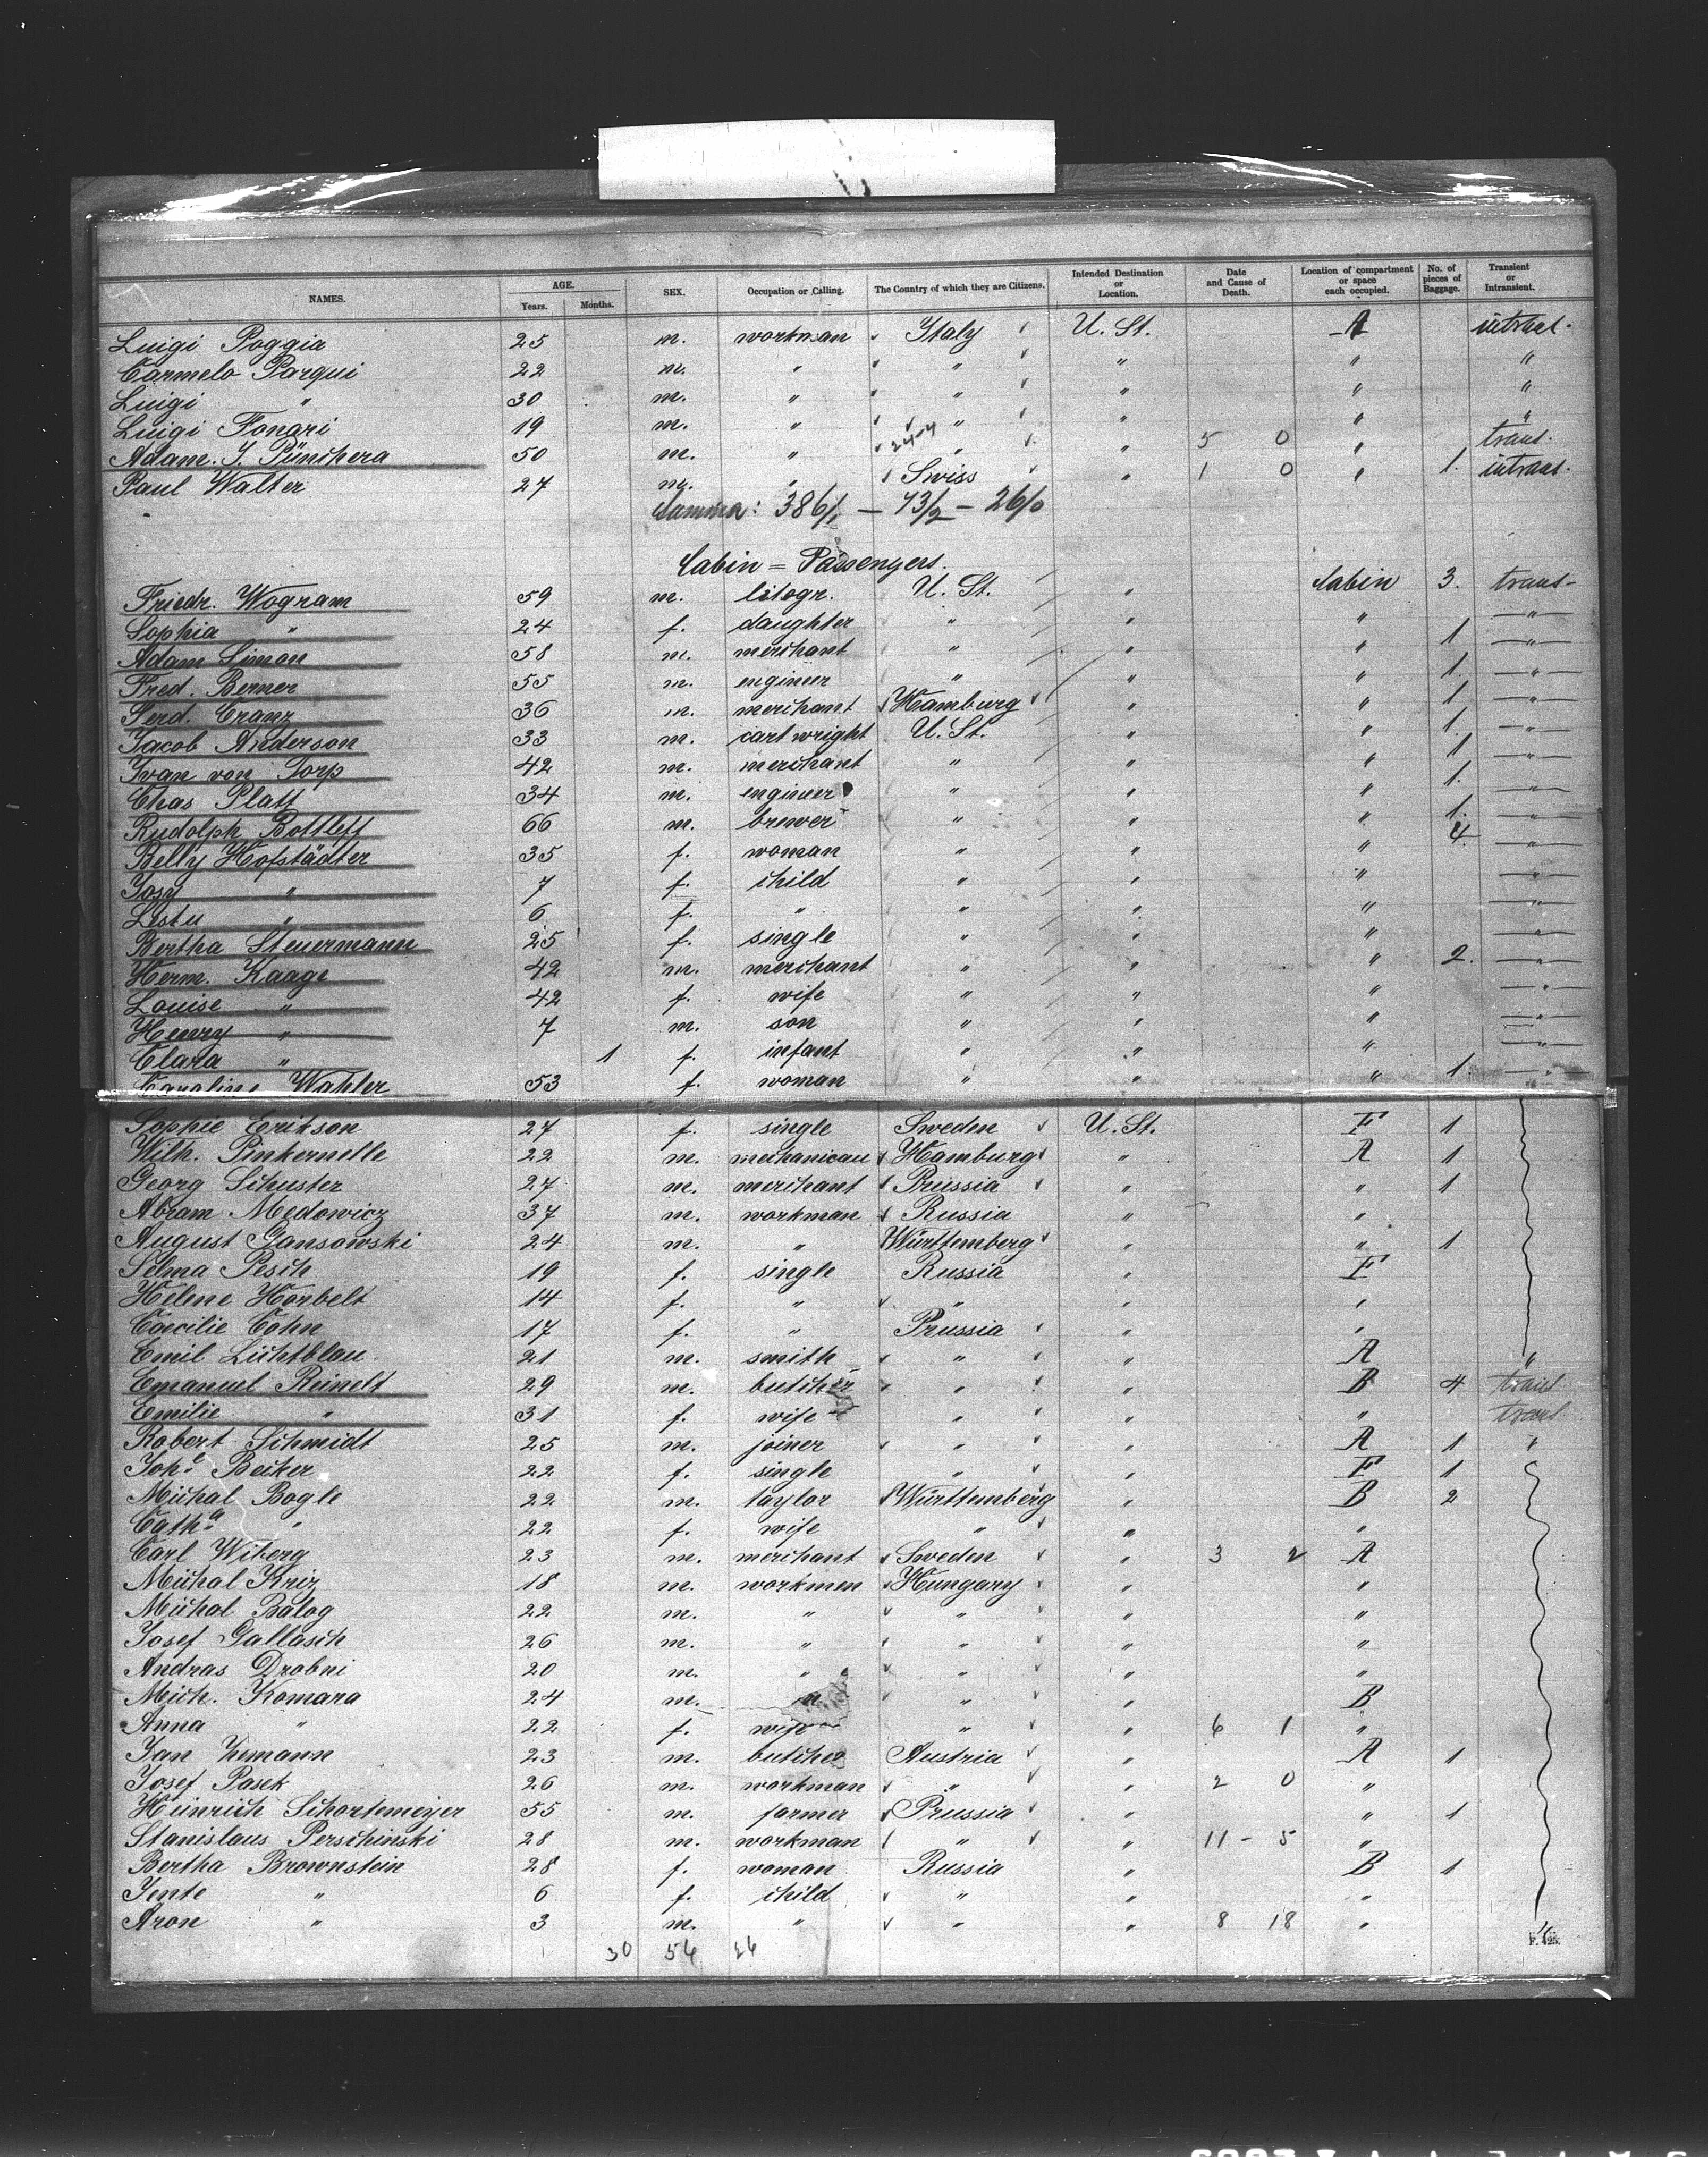 NAMES. AGE. Years. Months. SEX. Occupation or Calling. The Country of which they are Citizens. Intended Destination or Location. Date and Cause of Death. Location of compartment or space each occupied. No. of pieces of Baggage. Transient or Intransient.
Luigi Poggia 25 m. workman Italy U. St. A intrnt.
Carmelo Parqui 22 m. " " " " "
Luigi " 30 m. " " " " "
Luigi Fonari 19 m. " " " " "
Adam. J. Pünchera 50 m. " 24-4 " " 5 0 " trans.
Paul Walter 27 m. " Swiss " 1 0 " 1. intrans.
Summa: 386/1 — 73/2 — 26/0
Cabin = Passengers.
Friedr. Wogram 59 m. litogr. U. St. " Cabin 3. trans-
Sophia " 24 f. daughter " " " "
Adam Simon 58 m. merchant " " " 1 "
Fred. Berner 55 m. engineer " " " 1. "
Ferd. Cranz 36 m. merchant Hamburg " " 1 "
Jacob Anderson 33 m. cartwright U. St. " " 1. "
Ivan von Torp 42 m. merchant " " " 1 "
Chas Platt 34 m. engineer " " " 1. "
Rudolph Bottleff 66 m. brewer " " " 1. "
Belly Hofstädter 35 f. woman " " " 4. "
Josy " 7 f. child " " " "
" 6 f. " " " " "
Bertha Steuermann 25 f. single " " " "
Herm. Kaage 42 m. merchant " " " 2. "
Louise " 42 f. wife " " " "
Henry " 7 m. son " " " "
Clara " 1 f. infant " " " "
Caroline Wahler 53 f. woman " " " 1. "
Sophie Erikson 27 f. single Sweden U. St. F 1
Wilh. Pinkernelle 22 m. mechanican Hamburg " A 1
Georg Schuster 27 m. merchant Prussia " " 1
Abram Medowicz 37 m. workman Russia " "
August Gansowski 24 m. " Württemberg " " 1
Selma Pesch 19 f. single Russia " F
Helene Horbelt 14 f. " " " "
Caecilie Cohn 17 f. " Prussia " "
Emil Lichtblau 21 m. smith " " A "
Emanuel Reinelt 29 m. butcher " " B 4 trans
Emilie " 31 f. wife " " " trans
Robert Schmidt 25 m. joiner " " A 1 "
Joh.e Becker 22 f. single " " F 1
Michal Bogle 22 m. taylor Württemberg " B 2
Cath.a " 22 f. wife " " "
Carl Wiberg 23 m. merchant Sweden " 3 2 A
Michal Kriz 18 m. workmen Hungary " "
Michal Balog 22 m. " " " "
Josef Gallasch 26 m. " " " "
Andras Drobni 20 m. " " " "
Mich. Komara 24 m. " " " B
Anna " 22 f. wife " " 6 1 "
Jan Zemann 23 m. butcher Austria " A 1
Josef Pasek 26 m. workman " " 2 0 "
Heinrich Schortemeijer 55 m. farmer Prussia " " 1
Stanislaus Perschinski 28 m. workman " " 11 - 5 "
Bertha Brownstein 28 f. woman Russia " B 1
Jente " 6 f. child " " "
Aron " 3 m. " " " 8 18 "
30 54 26